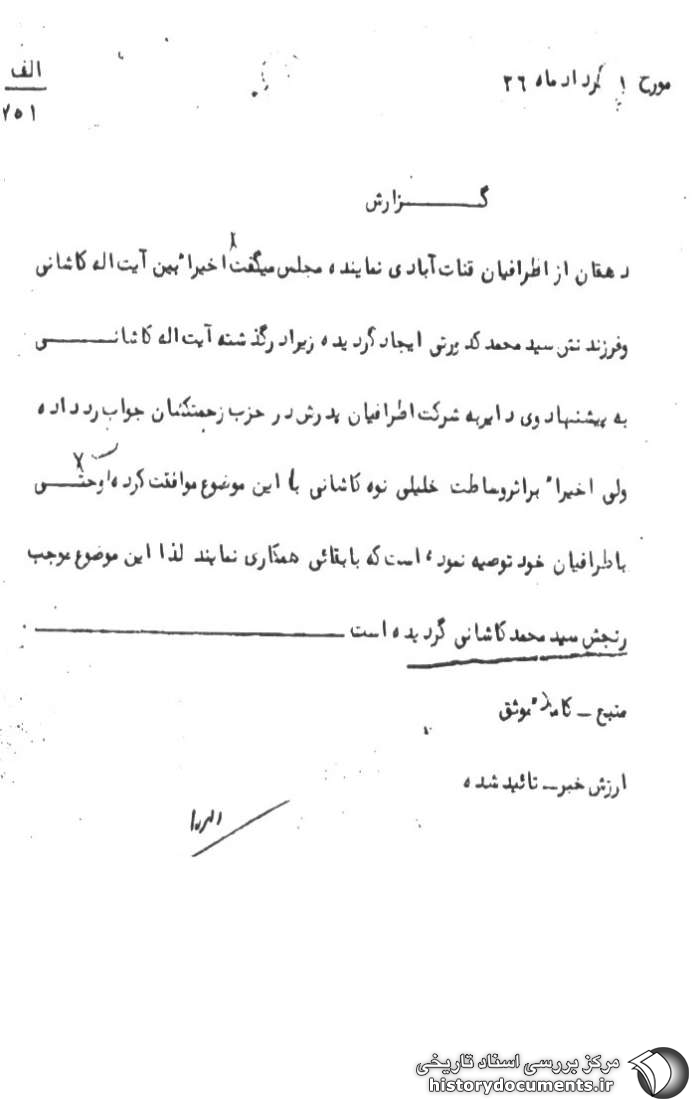 الف
۷۵۱
مورخ ۱ خرداد ماه ۳۶
گـــــزارش
دهقان از اطرافیان قنات آبادی نماینده مجلس میگفت اخیراً بین آیت اله کاشانی
وفرزندش سید محمد کدورتی ایجاد گردیده زیرا درگذشته آیت اله کاشانـــــی
به پیشنهاد وی دایربه شرکت اطرافیان پدرش در حزب زحمتکشان جواب رد داده
ولی اخیراً براثروساطت خلیلی نوه کاشانی با این موضوع موافقت کرده وحتــــی
باطرافیان خود توصیه نموده است که بابقائی همکاری نمایند لذا این موضوع موجب
رنجش سید محمد کاشانی گردیده است
منبع ـ کاملاً موثق
ارزش خبرـ تائید شده
مرکز بررسی اسناد تاریخی
historydocuments.ir